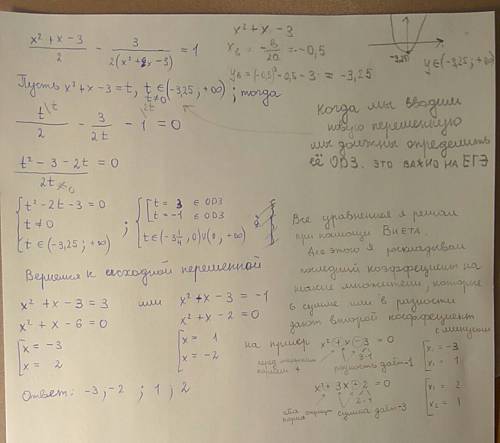 x² + x - 3 / 2 - 3 / 2(x² + x - 3) = 1
x² + x - 3
x_в = - в/2a = - 0,5
y_в = (-0,5)² - 0,5 - 3 = - 3,25
-3,25
y ∈ (-3,25 ; +∞)
Пусть x² + x - 3 = t, t ∈ (-3,25 ; +∞) ; тогда
t ≠ 0
t\t / 2 - 3 / 2t - 1\2t = 0
когда мы вводим
новую переменную
мы должны определить
её ОДЗ. это важно на ЕГЭ
t² - 3 - 2t / 2t ≠ 0 = 0
{ t² - 2t - 3 = 0
t ≠ 0
t ∈ (-3,25 ; +∞)
; { [ t = 3 ∈ ОДЗ
t = -1 ∈ ОДЗ
t ∈ (-3 1/4 , 0) ∪ (0 , +∞)
Все уравнения я решал
при помощи Виета.
Для этого я раскладывал
последний коэффициент на
такие множители, которые
в сумме или в разности
дают второй коэффициент
с минусом
Вернемся к исходной переменной
x² + x - 3 = 3 или x² + x - 3 = -1
x² + x - 6 = 0 x² + x - 2 = 0
[ x = -3
x = 2
[ x = 1
x = -2
Ответ: -3, -2 ; 1 ; 2
на пример x² + x - 3 = 0
3·1
разность даёт -1
[ x₁ = -3
x₂ = 1
x² + 3x + 2 = 0
2·1
оба
корня
сумма даёт -3
[ x₁ = 2
x₂ = 1